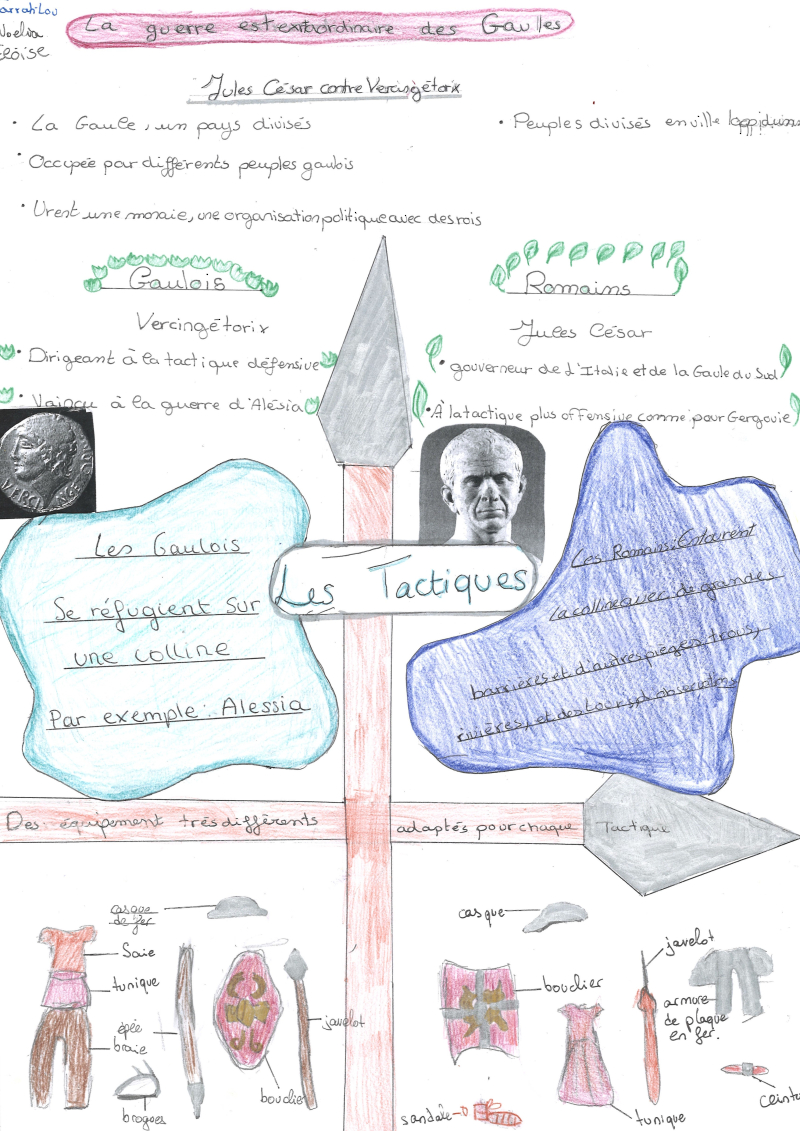 Noelia
Eloïse
La guerre est extraordinaire des Gaulles
Jules César contre Vercingétorix
• La Gaule, un pays divisés
• Peuples divisés en ville
• Occupée par différents peuples gaulois
• Urent une monaie, une organisation politique avec des rois
Gaulois
Vercingétorix
• Dirigeant à la tactique défensive
• Vaincu à la guerre d'Alésia
Romains
Jules César
• gouverneur de d'Italie et de la Gaule du Sud
• À la tactique plus offensive comme pour Gergovie
VERCINGE
Les Tactiques
Les Gaulois
Se réfugient sur
une colline
Par exemple : Alessia
Les Romains : Entourent
la colline avec de grandes
barrieres et d'autres pieges, trous,
rivières, et des tours
Des équipement trés différents
adaptés pour chaque Tactique
casque
de fer
Saie
tunique
épée
braie
brogues
bouclier
javelot
casque
bouclier
javelot
armure
de plaque
en fer.
sandale
tunique